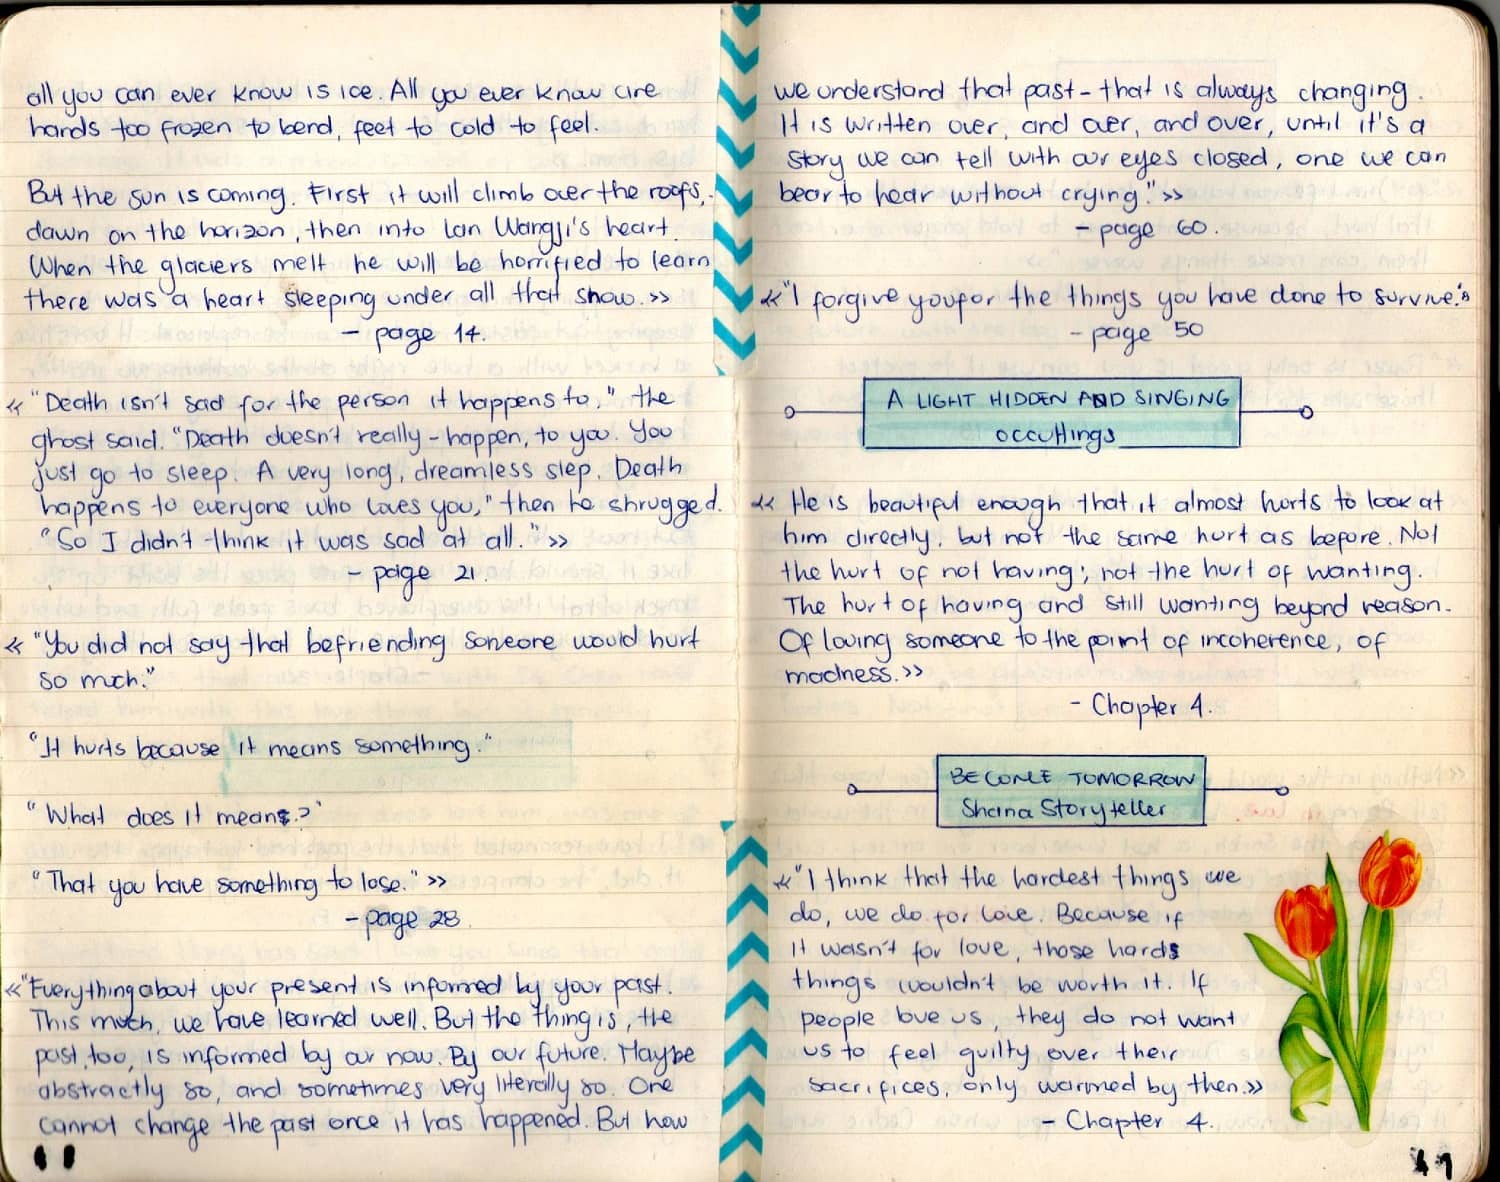 all you can ever know is ice. All you ever know are
hands too frozen to bend, feet to cold to feel.
But the sun is coming. First it will climb over the roofs,
dawn on the horizon, then into Lan Wangji's heart.
When the glaciers melt he will be horrified to learn
there was a heart sleeping under all that snow.»
- page 14.
« "Death isn't sad for the person it happens to," the
ghost said. "Death doesn't really - happen, to you. You
just go to sleep. A very long, dreamless slep. Death
happens to everyone who loves you," then he shrugged.
"So I didn't think it was sad at all." »
- page 21.
« "You did not say that befriending someone would hurt
so much."
"It hurts because it means something."
"What does it mean?"
"That you have something to lose." »
- page 28.
« "Everything about your present is informed by your past.
This much, we have learned well. But the thing is, the
past, too, is informed by our now. By our future. Maybe
abstractly so, and sometimes very literally so. One
cannot change the past once it has happened. But how
we understand that past - that is always changing.
It is written over, and over, and over, until it's a
story we can tell with our eyes closed, one we can
bear to hear without crying." »
- page 60.
« "I forgive you for the things you have done to survive."»
- page 50
A LIGHT HIDDEN AND SINGING
occultings
« He is beautiful enough that it almost hurts to look at
him directly, but not the same hurt as before. Not
the hurt of not having; not the hurt of wanting.
The hurt of having and still wanting beyond reason.
Of loving someone to the point of incoherence, of
madness. »
- Chapter 4.
BECOME TOMORROW
Shana Storyteller
« "I think that the hardest things we
do, we do for love. Because if
it wasn't for love, those hards
things wouldn't be worth it. If
people love us, they do not want
us to feel guilty over their
sacrifices, only warmed by then.»
- Chapter 4.